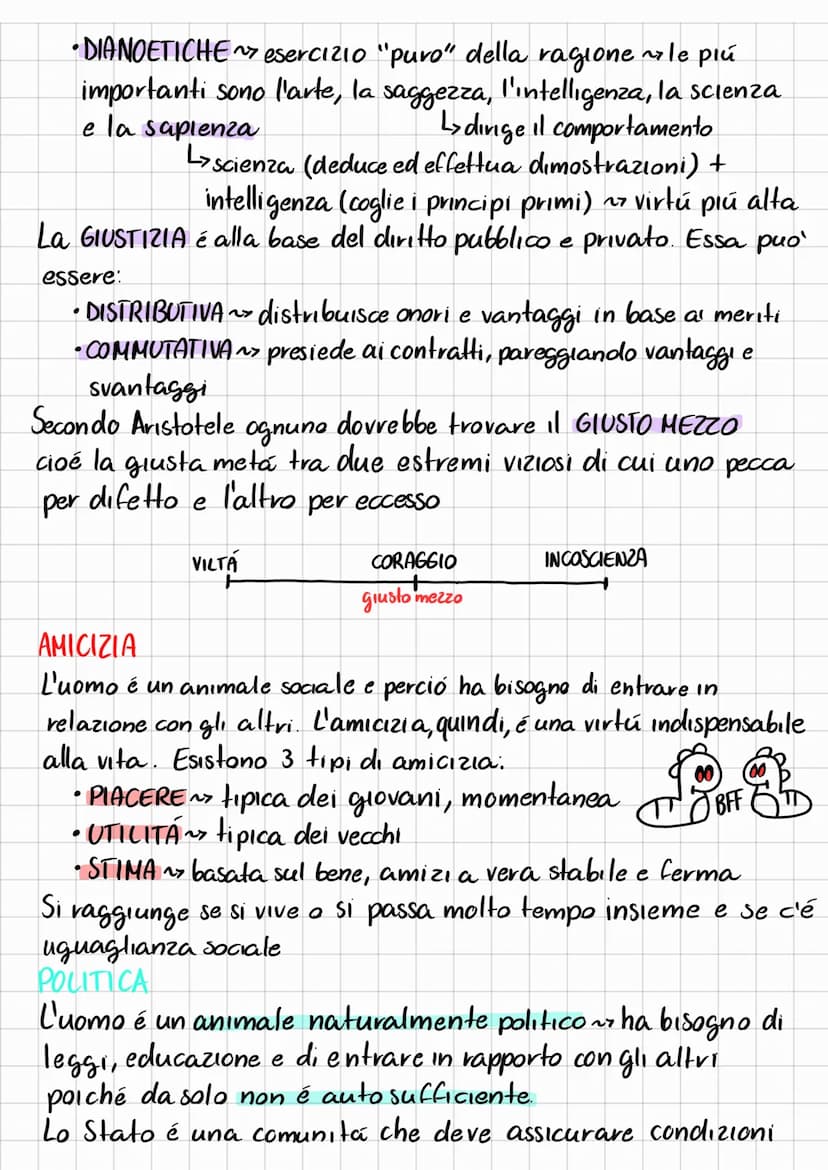 • DIANOETICHE ~> esercizio "puro" della ragione ~> le piú
importanti sono l'arte, la saggezza, l'intelligenza, la scienza
e la sapienza ↳ dirige il comportamento
↳ scienza (deduce ed effettua dimostrazioni) +
intelligenza (coglie i principi primi) ~> virtú piú alta
La GIUSTIZIA é alla base del diritto pubblico e privato. Essa puo'
essere:
• DISTRIBUTIVA ~> distribuisce onori e vantaggi in base ai meriti
• COMMUTATIVA ~> presiede ai contratti, pareggiando vantaggi e
svantaggi
Secondo Aristotele ognuno dovrebbe trovare il GIUSTO MEZZO
cioé la giusta metá tra due estremi viziosi di cui uno pecca
per difetto e l'altro per eccesso
VILTÁ CORAGGIO INCOSCIENZA
giusto mezzo
AMICIZIA
L'uomo é un animale sociale e perció ha bisogno di entrare in
relazione con gli altri. L'amicizia, quindi, é una virtú indispensabile
alla vita. Esistono 3 tipi di amicizia:
• PIACERE ~> tipica dei giovani, momentanea
BFF
• UTILITÁ ~> tipica dei vecchi
• STIMA ~> basata sul bene, amizia vera stabile e ferma
Si raggiunge se si vive o si passa molto tempo insieme e se c'é
uguaglianza sociale
POLITICA
L'uomo é un animale naturalmente politico ~> ha bisogno di
leggi, educazione e di entrare in rapporto con gli altri
poiché da solo non é autosufficiente.
Lo Stato é una comunitá che deve assicurare condizioni